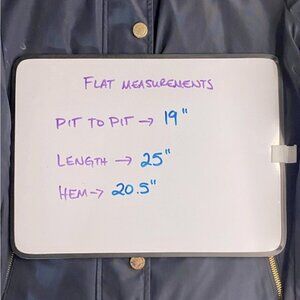 FLAT MEASUREMENTS
PIT TO PIT → 19"
LENGTH → 25"
HEM → 20.5"